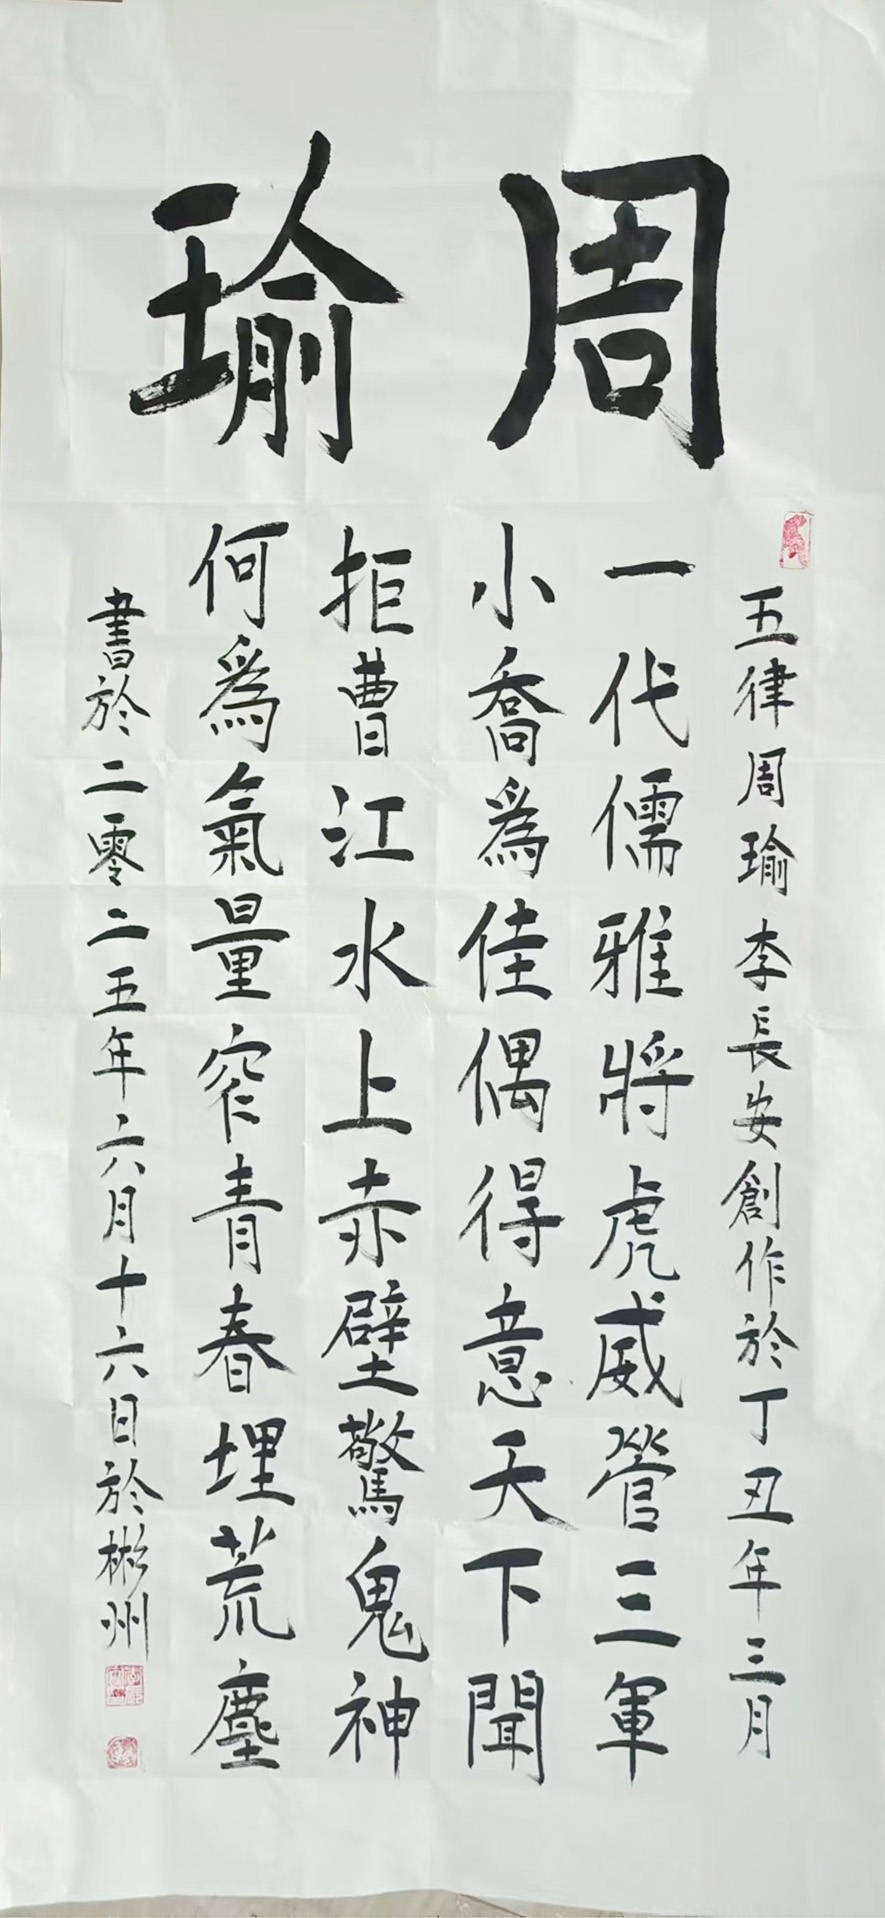 周瑜
五律周瑜李長安創作於丁丑年三月
一代儒雅將虎威營三軍
小喬爲佳偶得意天下聞
拒曹江水上赤壁驚鬼神
何爲氣量窄青春埋荒塵
書於二零二五年六月十六日於彬州